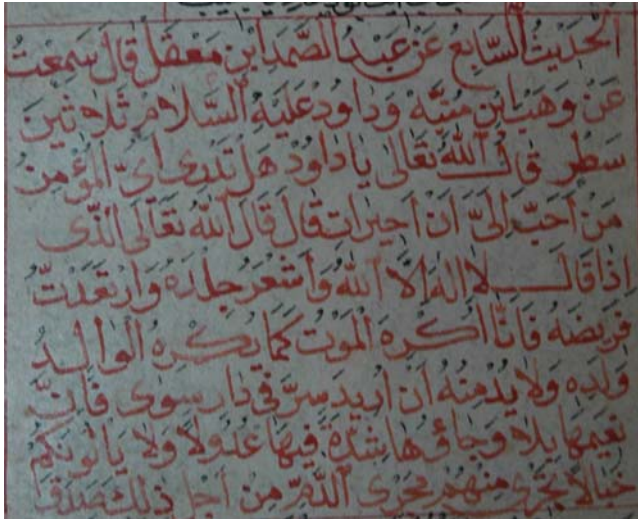 الحَدِيثُ السَّابِعُ عَنْ عَبْدُ الصَّمَدِ ابْنِ مَعْقَلْ قَالَ سَمِعْتُ
عَنْ وَهَبْ ابْنِ مُنَبَّهْ وَدَاوُدْ عَلَيْهِ السَّلَامْ ثَلَاثِينَ
سَطْرِ قَالَ اللّٰهُ تَعَالَى يَا دَاوُدْ هَلْ تَدْرِى اَىُّ الْمُؤْمِنُ
مَنْ اَحَبَّ اِلَىَّ اَنْ اَحِيرَاتِ قَالَ قَالَ اللّٰهُ تَعَالَى الَّذِى
اِذَا قَالَ لَا اِلٰهَ اِلَّا اللّٰهُ وَاَشْعَرَ جِلْدَهُ وَارْتَعَدَتُّ
فَرِيضَهُ فَاِنَّا اُكْرِهَ الْمَوْتُ كَمَا يَكْرِهُ الْوَالِدُ
وَلَدِهِ وَلَا بُدَّ مِنْهُ اَنْ اُرِيدَ سِرَّ فِى دَارِ سِوَى فَاِنَّ
نَعِيمَهَا بَلَاءُ وَجَاؤُهَا شِدَّةُ فِيهَا عُدُولًا وَلَا يَأْلُونَكُمْ
خَبَالًا تَجْرِى مِنْهُمْ مَجْرَى الدَّمِّ مِنْ اَجْلِ ذٰلِكَ صَدَقَا